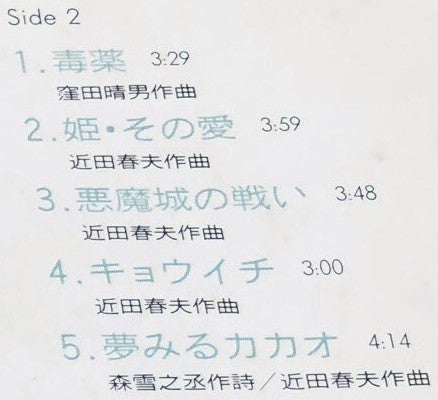 Side 2
1.毒薬 3:29
窪田晴男作曲
2.姫・その愛 3:59
近田春夫作曲
3.悪魔城の戦い 3:48
近田春夫作曲
4.キョウイチ 3:00
近田春夫作曲
5.夢みるカカオ 4:14
森雪之丞作詩／近田春夫作曲